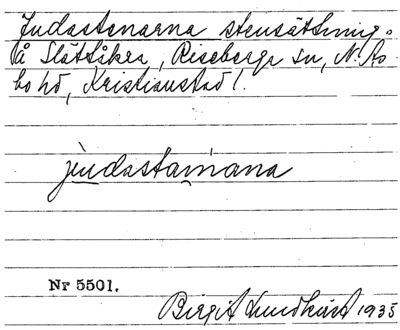 Judastenarna stensättning.
å Slättåkra, Riseberga sn, N. Ås-
bo hd, Kristianstad l.
jùdastaiṇana
Nr 5501.
Birgit Lundkvist 1935